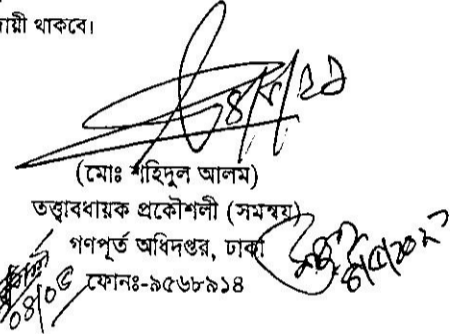 য়ী থাকবে।
(মোঃ শহিদুল আলম)
তত্ত্বাবধায়ক প্রকৌশলী (সমন্বয়)
গণপূর্ত অধিদপ্তর, ঢাকা
ফোনঃ-৯৫৬৮৯১৪
০৪/০৫